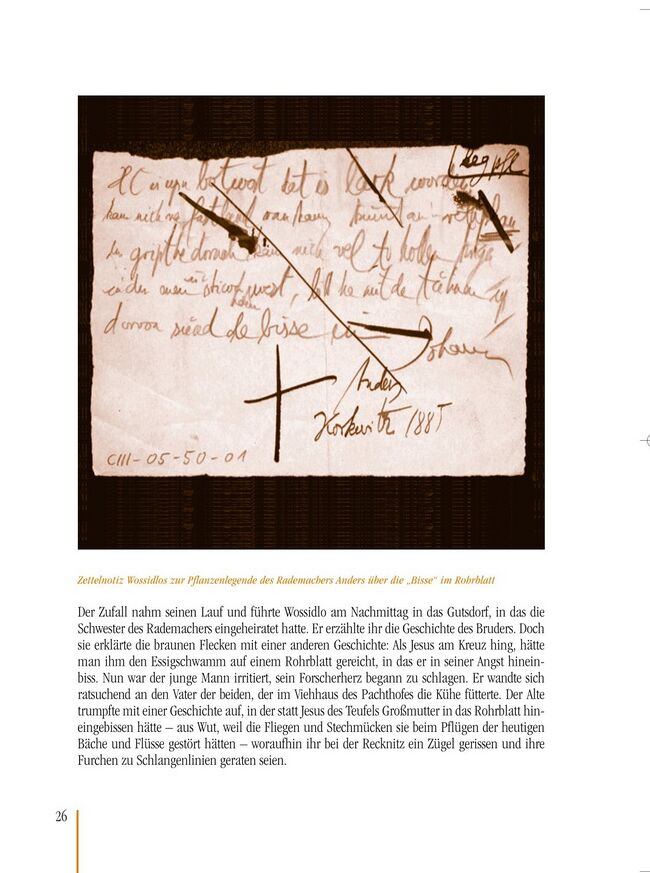 HC is
botwost dat is
kan nich
he
nich vel to hollen
in den
het he mit de tähnen
dorvon sünd de bisse in
Johann
Anders
Korkwitz 1885
CIII-05-50-01
Zettelnotiz Wossidlos zur Pflanzenlegende des Rademachers Anders über die „Bisse“ im Rohrblatt
Der Zufall nahm seinen Lauf und führte Wossidlo am Nachmittag in das Gutsdorf, in das die
Schwester des Rademachers eingeheiratet hatte. Er erzählte ihr die Geschichte des Bruders. Doch
sie erklärte die braunen Flecken mit einer anderen Geschichte: Als Jesus am Kreuz hing, hätte
man ihm den Essigschwamm auf einem Rohrblatt gereicht, in das er in seiner Angst hinein-
biss. Nun war der junge Mann irritiert, sein Forscherherz begann zu schlagen. Er wandte sich
ratsuchend an den Vater der beiden, der im Viehhaus des Pachthofes die Kühe fütterte. Der Alte
trumpfte mit einer Geschichte auf, in der statt Jesus des Teufels Großmutter in das Rohrblatt hin-
eingebissen hätte – aus Wut, weil die Fliegen und Stechmücken sie beim Pflügen der heutigen
Bäche und Flüsse gestört hätten – woraufhin ihr bei der Recknitz ein Zügel gerissen und ihre
Furchen zu Schlangenlinien geraten seien.
26